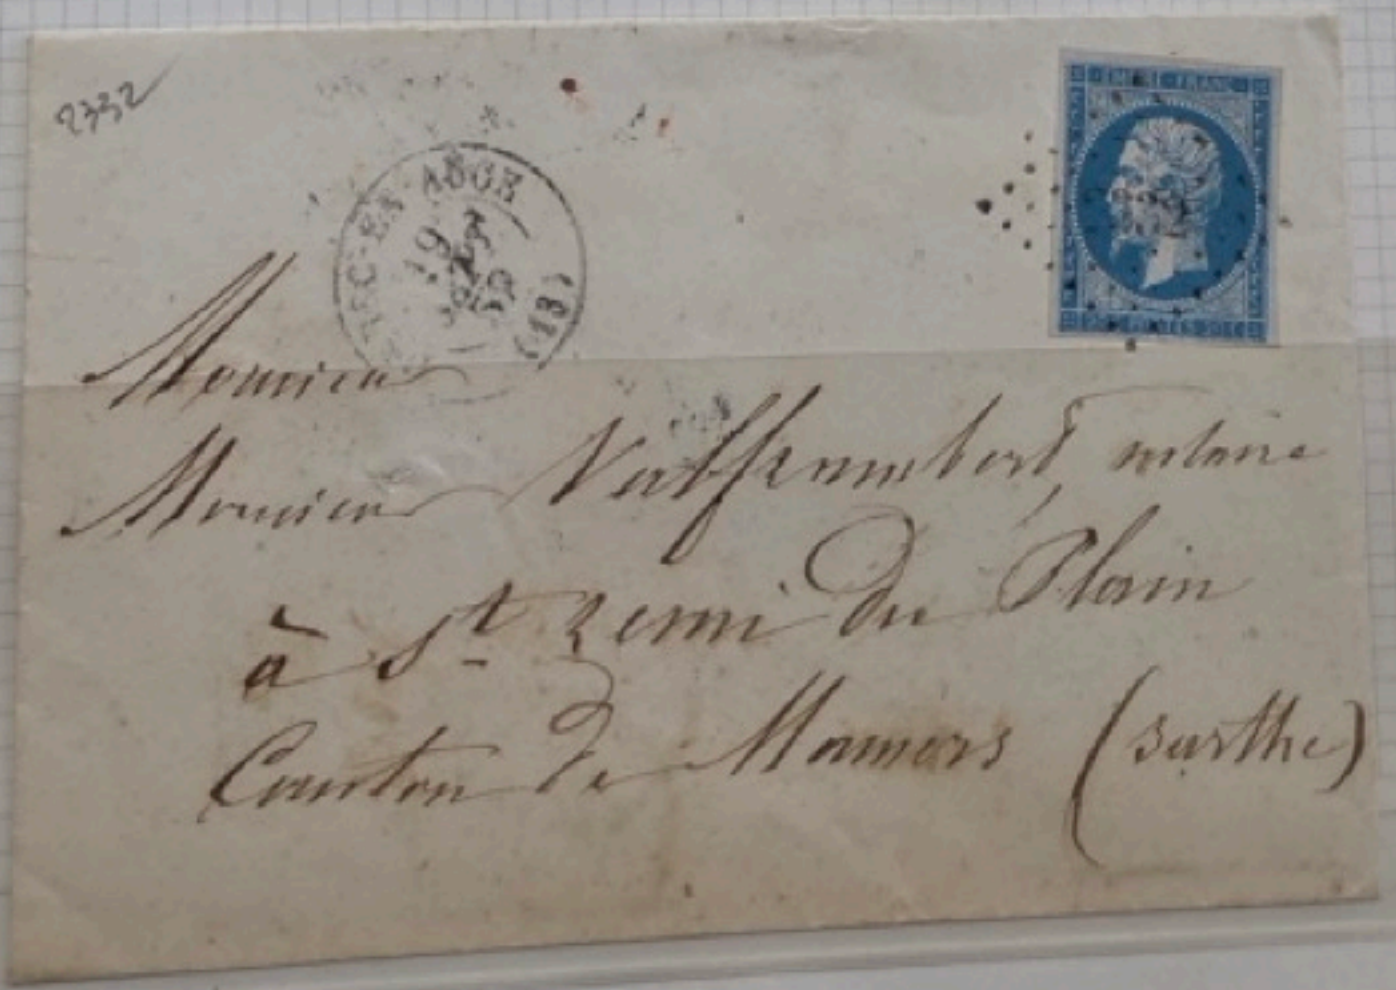 2332
EMPIRE FRANC
2332
POSTES
EN-AUGE
19
59
(13)
Monsieur
Monsieur Valframbert, notaire
à St remi du Plain
Canton de Mamers (Sarthe)